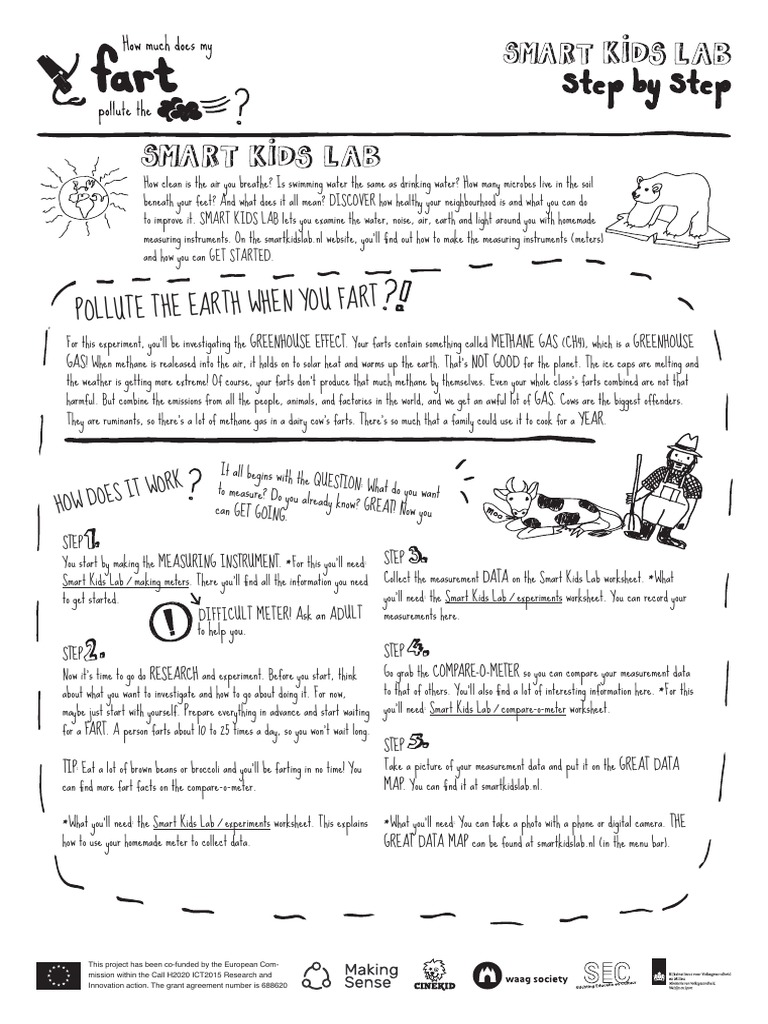 How much does my
fart
pollute the ?
SMART KIDS LAB
Step by Step
SMART KIDS LAB
How clean is the air you breathe? Is swimming water the same as drinking water? How many microbes live in the soil
beneath your feet? And what does it all mean? DISCOVER how healthy your neighbourhood is and what you can do
to improve it. SMART KIDS LAB lets you examine the water, noise, air, earth and light around you with homemade
measuring instruments. On the smartkidslab.nl website, you'll find out how to make the measuring instruments (meters)
and how you can GET STARTED.
POLLUTE THE EARTH WHEN YOU FART?!
For this experiment, you'll be investigating the GREENHOUSE EFFECT. Your farts contain something called METHANE GAS (CH4), which is a GREENHOUSE
GAS! When methane is realeased into the air, it holds on to solar heat and warms up the earth. That's NOT GOOD for the planet. The ice caps are melting and
the weather is getting more extreme! Of course, your farts don't produce that much methane by themselves. Even your whole class's farts combined are not that
harmful. But combine the emissions from all the people, animals, and factories in the world, and we get an awful lot of GAS. Cows are the biggest offenders.
They are ruminants, so there's a lot of methane gas in a dairy cow's farts. There's so much that a family could use it to cook for a YEAR.
HOW DOES IT WORK?
It all begins with the QUESTION: What do you want
to measure? Do you already know? GREAT! Now you
can GET GOING.
MOO
STEP 1.
You start by making the MEASURING INSTRUMENT. *For this you'll need:
Smart Kids Lab / making meters. There you'll find all the information you need
to get started.
! DIFFICULT METER! Ask an ADULT
to help you.
STEP 2.
Now it's time to go do RESEARCH and experiment. Before you start, think
about what you want to investigate and how to go about doing it. For now,
maybe just start with yourself. Prepare everything in advance and start waiting
for a FART. A person farts about 10 to 25 times a day, so you won't wait long.
TIP: Eat a lot of brown beans or broccoli and you'll be farting in no time! You
can find more fart facts on the compare-o-meter.
*What you'll need: the Smart Kids Lab / experiments worksheet. This explains
how to use your homemade meter to collect data.
STEP 3.
Collect the measurement DATA on the Smart Kids Lab worksheet. *What
you'll need: the Smart Kids Lab / experiments worksheet. You can record your
measurements here.
STEP 4.
Go grab the COMPARE-O-METER so you can compare your measurement data
to that of others. You'll also find a lot of interesting information here. *For this
you'll need: Smart Kids Lab / compare-o-meter worksheet.
STEP 5.
Take a picture of your measurement data and put it on the GREAT DATA
MAP. You can find it at smartkidslab.nl.
*What you'll need: You can take a photo with a phone or digital camera. THE
GREAT DATA MAP can be found at smartkidslab.nl (in the menu bar).
This project has been co-funded by the European Com-
mission within the Call H2020 ICT2015 Research and
Innovation action. The grant agreement number is 688620
Making
Sense
CINEKID
waag society
SEC